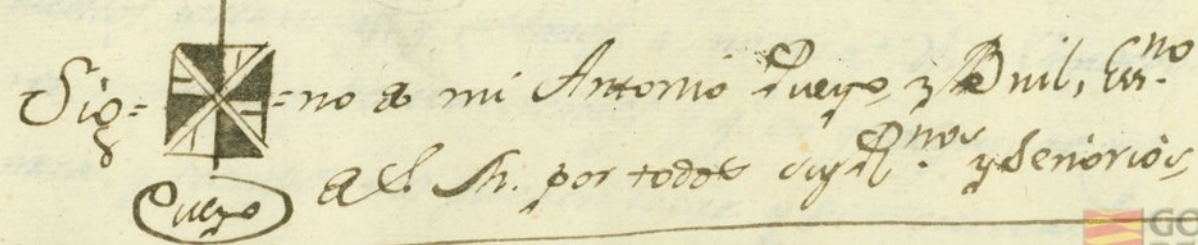 Sig= =no de mi Antonio Pueyo, y Bnil, Essno
de S. M. por todos sus Rnos y Señorios,
Pueyo
GO